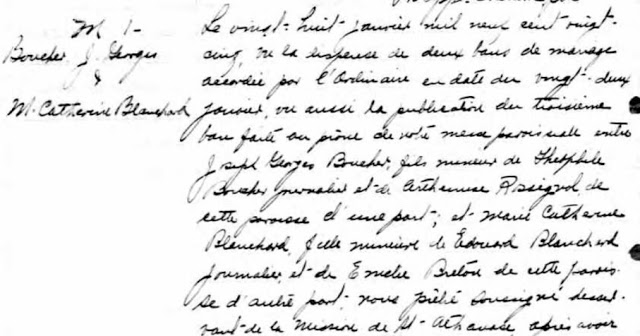 M 1-
Boucher, J. Georges
&
M. Catherine Blanchard
Le vingt-huit janvier mil neuf cent vingt-
cinq, vu la dispense de deux bans de mariage
accordée par l'Ordinaire en date du vingt-deux
janvier, vu aussi la publication du troisième
ban faite au prône de notre messe paroissiale entre
Joseph Georges Boucher, fils mineur de Théophile
Boucher journalier et de Arthémise Rossignol, de
cette paroisse d'une part; et Marie Catherine
Blanchard, fille mineure de Edouard Blanchard
journalier, et de Emelie Breton de cette parois-
se d'autre part, nous prêtre soussigné desser-
vant de la Mission de St-Athanase, après avoir